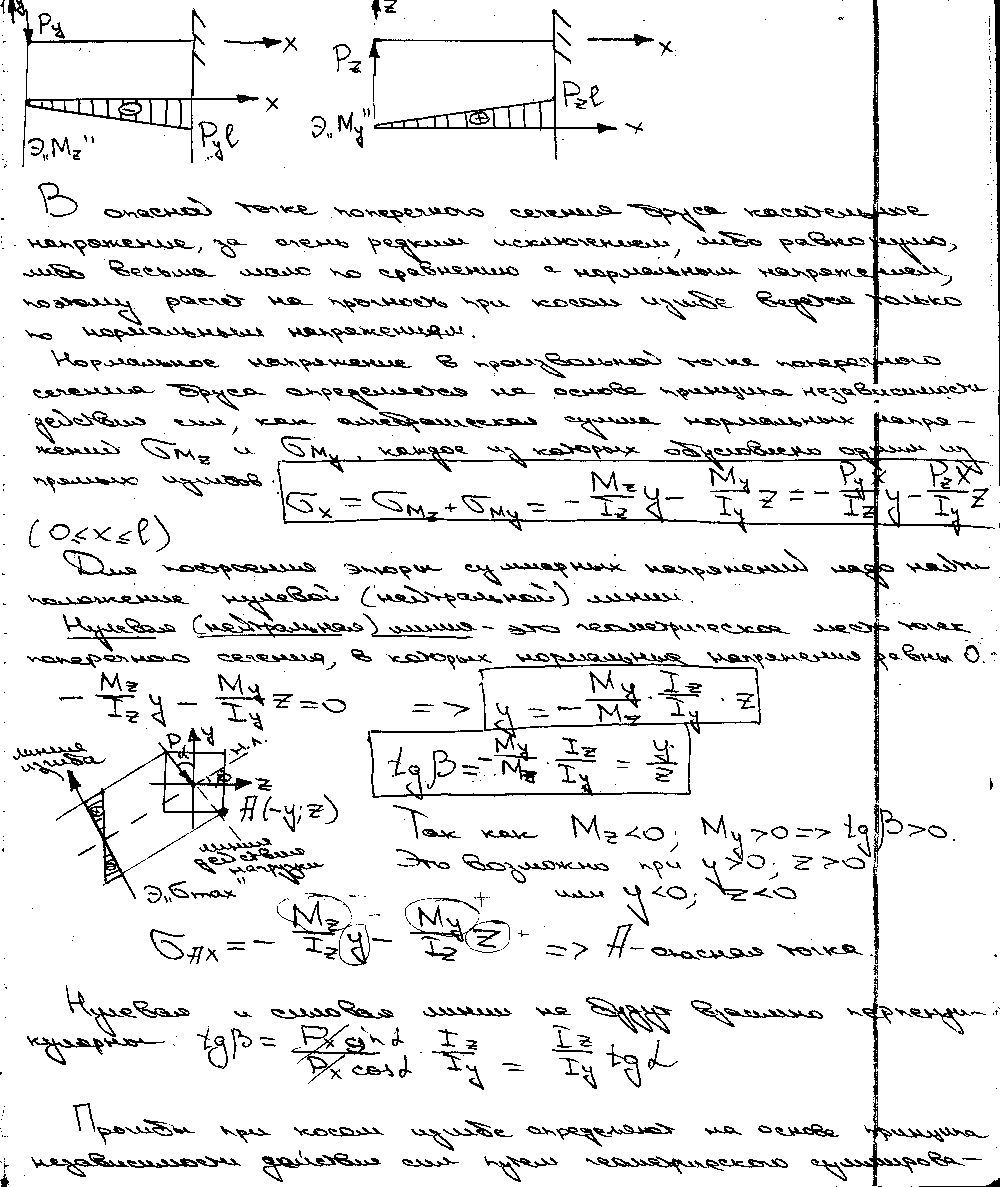 y z
Py x Pz x
x Pzl
Э„Mz" Pyl Э„My" x
В опасной точке поперечного сечения бруса касательное
напряжение, за очень редким исключением, либо равно нулю,
либо весьма мало по сравнению с нормальным напряжением,
поэтому расчет на прочность при косом изгибе ведется только
по нормальным напряжениям.
Нормальное напряжение в произвольной точке поперечного
сечения бруса определяется на основе принципа независимости
действия сил, как алгебраическая сумма нормальных напря-
жений σMz и σMy, каждое из которых обусловлено одним из
прямых изгибов. σx = σMz + σMy = - Mz/Iz y - My/Iy z = - Pyx/Iz y - Pzx/Iy z
(0≤x≤l)
Для построения эпюры суммарных напряжений надо найти
положение нулевой (нейтральной) линии.
Нулевая (нейтральная) линия - это геометрическое место точек
поперечного сечения, в которых нормальные напряжения равны 0.
- Mz/Iz y - My/Iy z = 0 => y = - My/Mz · Iz/Iy · z
линия изгиба P α y н.л. β z
tg β = - My/Mz · Iz/Iy = y/z
A(-y; z)
Так как Mz<0; My>0 => tgβ>0.
линия действия нагрузки
Это возможно при y>0; z>0
Э„σmax" или y<0; z<0
σAx = - Mz/Iz y - My/Iz z => A - опасная точка
Нулевая и силовая линии не будут взаимно перпенди-
кулярны. tgβ = Px sinα/Px cosα · Iz/Iy = Iz/Iy tgα
Прогибы при косом изгибе определяют на основе принципа
независимости действия сил путем геометрического суммирова-